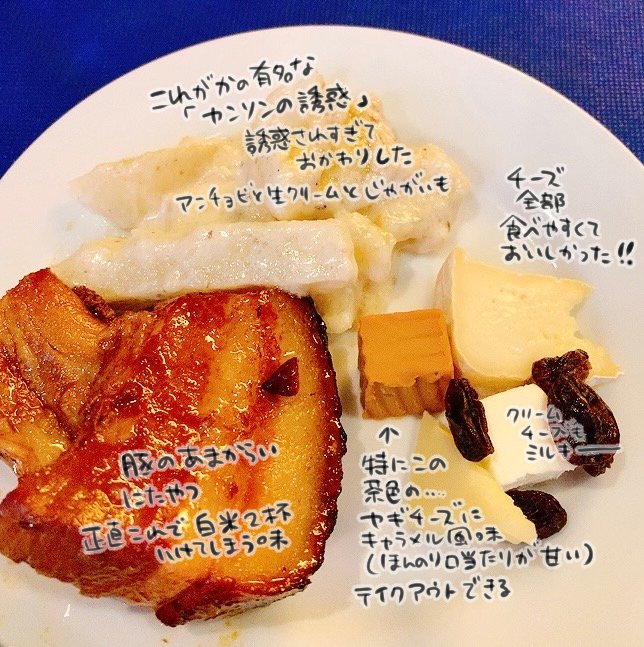 これがかの有名な
「ヤンソンの誘惑」
誘惑されすぎて
おかわりした
アンチョビと生クリームとじゃがいも
チーズ
全部
食べやすくて
おいしかった!!
クリーム
チーズも
ミルキー
豚のあまからい
にたやつ
正直これで白米2杯
いけてしまう味
↑
特にこの
茶色の……
ヤギチーズに
キャラメル風味
(ほんのり口当たりが甘い)
テイクアウトできる